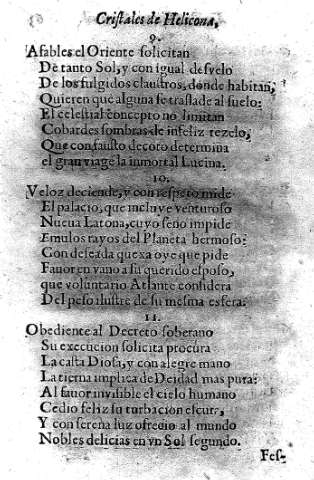 Cristales de Helicona,
9.
Afables el Oriente solicitan
De tanto Sol, y con igual desvelo
De los fulgidos claustros, donde habitan,
Quieren que alguna se traslade al suelo:
El celestial concepto no limitan
Cobardes sombras de infeliz rezelo,
Que con fausto decoro determina
el gran viage la inmortal Lucina.
10.
Veloz deciende, y con respeto mide
El palacio, que incluye venturoso
Nueva Latona, cuyo seno impide
Emulos rayos del Planeta hermoso:
Con deseada quexa oye que pide
Favor en vano a su querido esposo,
que voluntario Atlante considera
Del peso ilustre de su mesma esfera.
11.
Obediente al Decreto soberano
Su execucion solicita procura
La casta Diosa, y con alegre mano
La tierna implica de Deidad mas pura:
Al favor invisible el cielo humano
Cedio feliz su turbacion escura,
Y con serena luz ofrecio al mundo
Nobles delicias en vn Sol segundo.
Fes-